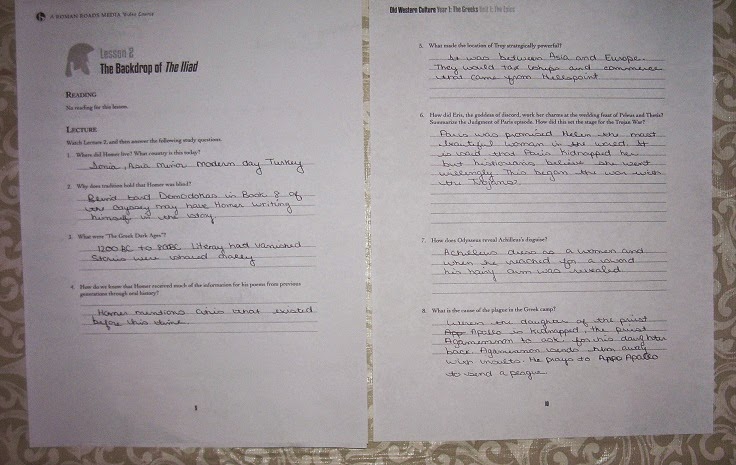 A ROMAN ROADS MEDIA Video Course
Lesson 2
The Backdrop of The Iliad
READING
No reading for this lesson.
LECTURE
Watch Lecture 2, and then answer the following study questions.
1. Where did Homer live? What country is this today?
Ionia, Asia minor modern day Turkey
2. Why does tradition hold that Homer was blind?
Blind bard Demodokos in Book 8 of
the Odyssey may have Homer writing
himself in the story
3. What were "The Greek Dark Ages"?
1200 BC to 800BC. Literay had vanished
Stories were shared orally
4. How do we know that Homer received much of the information for his poems from previous
generations through oral history?
Homer mentions cities that existed
before this time
Old Western Culture Year 1: The Greeks Unit 1: The Epics
5. What made the location of Troy strategically powerful?
It was between Asia and Europe.
They would tax ships and commerce
that came from Hellespoint
6. How did Eris, the goddess of discord, work her charms at the wedding feast of Peleus and Thetis?
Summarize the Judgment of Paris episode. How did this set the stage for the Trojan War?
Paris was promised Helen the most
beautiful woman in the world. It
is said that Paris kidnapped her
but historians believe she went
willingly. This began the war with
the Trojans.
7. How does Odysseus reveal Achilleus's disguise?
Achilleus dress as a women and
when he reached for a sword
his hairy arm was revealed
8. What is the cause of the plague in the Greek camp?
the daughter of the priest
App Apollo is kidnapped, the priest
Agamemnon to ask for his daughter
back. Agamemnon sends him away
with insults. He prays to Appo Apollo
to send a peague